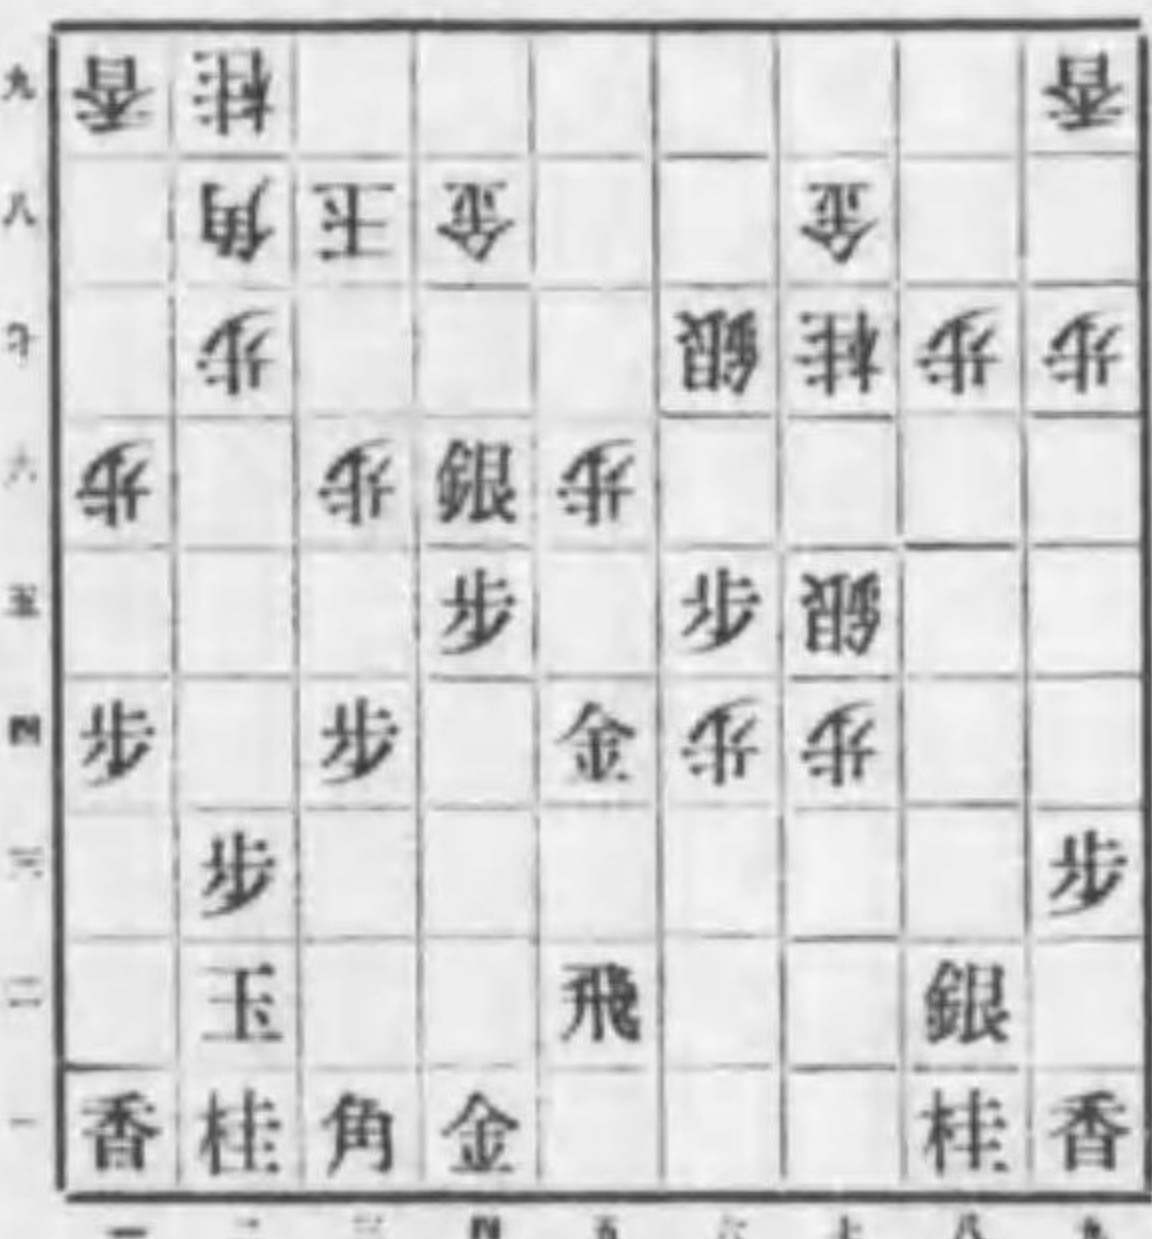 九 香 桂 香
八 角 玉 金 金
歩 銀 桂 歩 歩
六 歩 歩 銀 歩
五 歩 歩 銀
四 歩 歩 金 歩 歩
三 歩 歩
二 玉 飛 銀
一 香 桂 角 金 桂 香
一 二 三 四 五 六 七 八 九